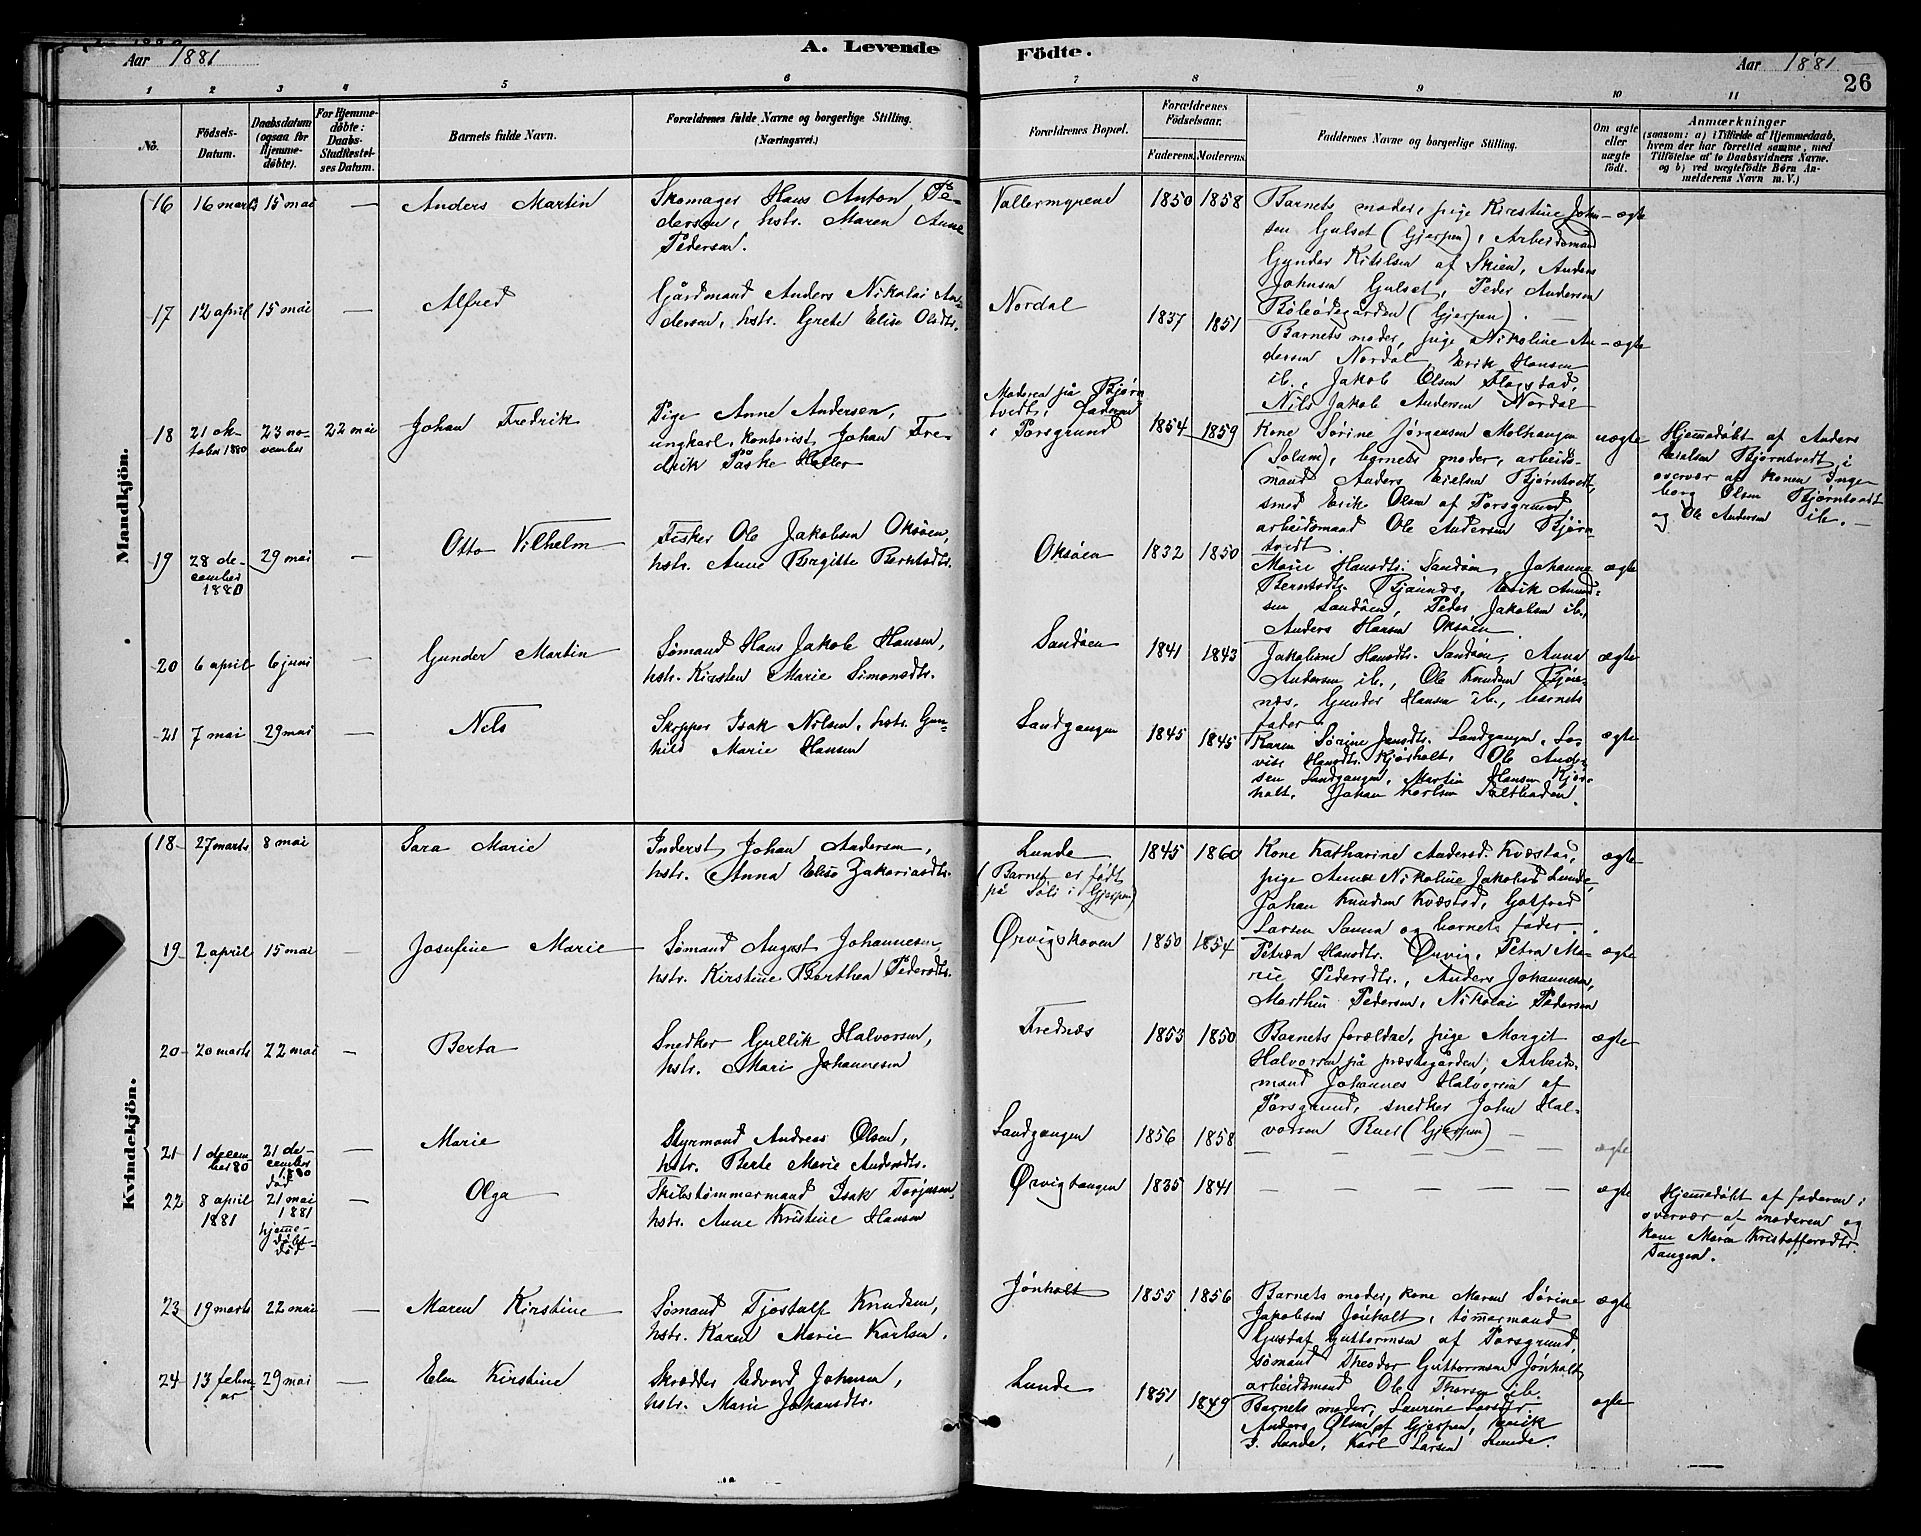 Aar 1881 A. Levende Födte. Aar 1881 26
1 2 3 4 5 6 7 8 9 10 11
No.
Födsels-Datum.
Daabsdatum (ogsaa for Hjemmedöbte).
For Hjemmedöbte: Daabs-Stadfæstelses Datum.
Barnets fulde Navn.
Forældrenes fulde Navne og borgerlige Stilling. (Næringsvei.)
Forældrenes Bopæl.
Forældrenes Födselsaar.
Faderens. Moderens.
Faddernes Navne og borgerlige Stilling.
Om ægte eller uægte födt.
Anmærkninger
(saasom: a) i Tilfælde af Hjemmedaab, hvem der har forrettet samme, med Tilföielse af to Daabsvidners Navne. og b) ved uægtefödte Börn Anmelderens Navn m. V.)
Mandkjön.
16 16 marts 15 mai — Anders Martin
Skomager Hans Anton Pe-
dersen, hstr. Maren Anne
Pedersen.
Vallermyrene 1850 1858
Barnets moder, pige Kirstine John-
sen Gulset (Gjerpen), Arbeidsmand
Gunder Kittilsen af Skien, Anders
Johnsen Gulset, Peder Andersen
Böleödegården (Gjerpen). —
ægte
17 12 april 15 mai — Alfred
Gårdmand Anders Nikolai An-
dersen, hstr. Grete Elise Olsdtr.
Nordal 1837 1851
Barnets moder, pige Nikoline An-
dersen Nordal, Erik Hansen
ib., Jakob Olsen Flogstad,
Nils Jakob Andersen Nordal
ægte
18 21 ok-
tober 1880 23 no-
vember 22 mai Johan Fredrik
Pige Anne Andersen,
ungkarl, kontorist Johan Fre-
drik Påske Høller
Moderen på Bjørn
tvedt, Faderen
i Porsgrund 1854 1859
Kone Sørine Jørgensen Molhaugen
(Solum), barnets moder, arbeids-
mand Anders Eielsen Bjørntvedt,
smed Erik Olsen af Porsgrund
arbeidsmand Ole Andersen Bjørn
tvedt
uægte
Hjemmedøbt af Anders
Eielsen Bjørntvedt, i
overvær af konen Inge
borg Olsen Bjørntvedt
og Ole Andersen ib. —
19 28 de-
cember
1880 29 mai — Otto Vilhelm
Fisker Ole Jakobsen Oksøen,
hstr. Anne Birgitte Berntsdtr.
Oksøen 1832 1850
Marie Hansdtr. Sandøen, Johanne
Berntsdtr. Bjønnæs, Erik Amund-
sen Sandøen, Peder Jakobsen ib.,
Anders Hansen Oksøen
ægte
20 6 april 6 juni — Gunder Martin
Sømand Hans Jakob Hansen,
hstr. Kirsten Marie Simonsdtr.
Sandøen 1841 1843
Jakobine Hansdtr. Sandøen, Anna
Andersen ib., Ole Knudsen Bjøn-
næs, Gunder Hansen ib., barnets
fader.
ægte
21 7 mai 29 mai — Nils
Skipper Isak Nilsen, hstr. Gun-
hild Marie Hansen
Landgangen 1845 1845
Karen Sørine Jensdtr. Landgangen, Lo-
vise Hansdtr. Kjørholt, Ole Ander
sen Landgangen, Martin Hansen Kjør-
holt, Johan Karlsen Saltboden.
ægte
Kvindekjön.
18 27 marts 8 mai Sara Marie
Inderst Johan Andersen,
hstr. Anna Elise Zakariasdtr.
Lunde
(Barnet er født
på Sóli i Gjerpen) 1845 1860
Kone Katharine Andersd. Kvæstad,
pige Anne Nikoline Jakobsd Lunde,
Johan Knudsen Kvæstad, Gotfred
Larsen Sanna og barnets fader.
ægte
19 2 april 15 mai — Josefine Marie
Sømand August Johannesen
hstr. Kirstine Berthea Pedersdtr.
Ørvigskoven 1850 1854
Petrea Hansdtr. Ørvig, Petra Ma-
rie Pedersdtr., Anders Johannesen,
Marthin Pedersen, Nikolai Pedersen
ægte
20 20 marts 22 mai — Berta
Snedker Gullik Halvorsen,
hstr. Mari Johannesen
Frednæs 1853 1850
Barnets forældre, pige Margit
Halvorsen på præstegården, Arbeids-
mand Johannes Halvorsen af
Porsgrund, snedker John Hal-
vorsen Bue (Gjerpen) —
ægte
21 1 decem
ber 80 21 de-
cember
1880
død — Marie
Styrmand Andreas Olsen,
hstr. Berte Marie Andersdtr.
Landgangen 1856 1858 — — — — — ægte
22 8 april
1881 21 mai
1881
hjemme-
døbt-
død — Olga
Skibstømmermand Isak Torjusen,
hstr. Anne Kristine Hansen
Ørvigtangen 1835 1841 — — — — — ægte
Hjemmedøbt af faderen i
overvær af moderen og
kone Maren Kristoffersdtr.
Tangen.
23 19 marts 22 mai — Maren Kirstine
Sømand Tjostolf Knudsen,
hstr. Karen Marie Karlsen.
Jönholt 1855 1856
Barnets moder, kone Maren Sørine
Jakobsen Jönholt, tømmermand
Gustaf Guttormsen af Porsgrund,
sømand Theodor Guttormsen Jönholt
arbeidsmand Ole Thorsen ib.
ægte
24 13 febru
ar 29 mai — Elen Kirstine
Skrædder Edvard Johnsen,
hstr. Marie Johansdtr.
Lunde 1851 1849
Barnets moder, Laurine Larsdtr
Anders Olsen af Gjerpen,
Lunde, Karl Larsen Lunde.
ægte